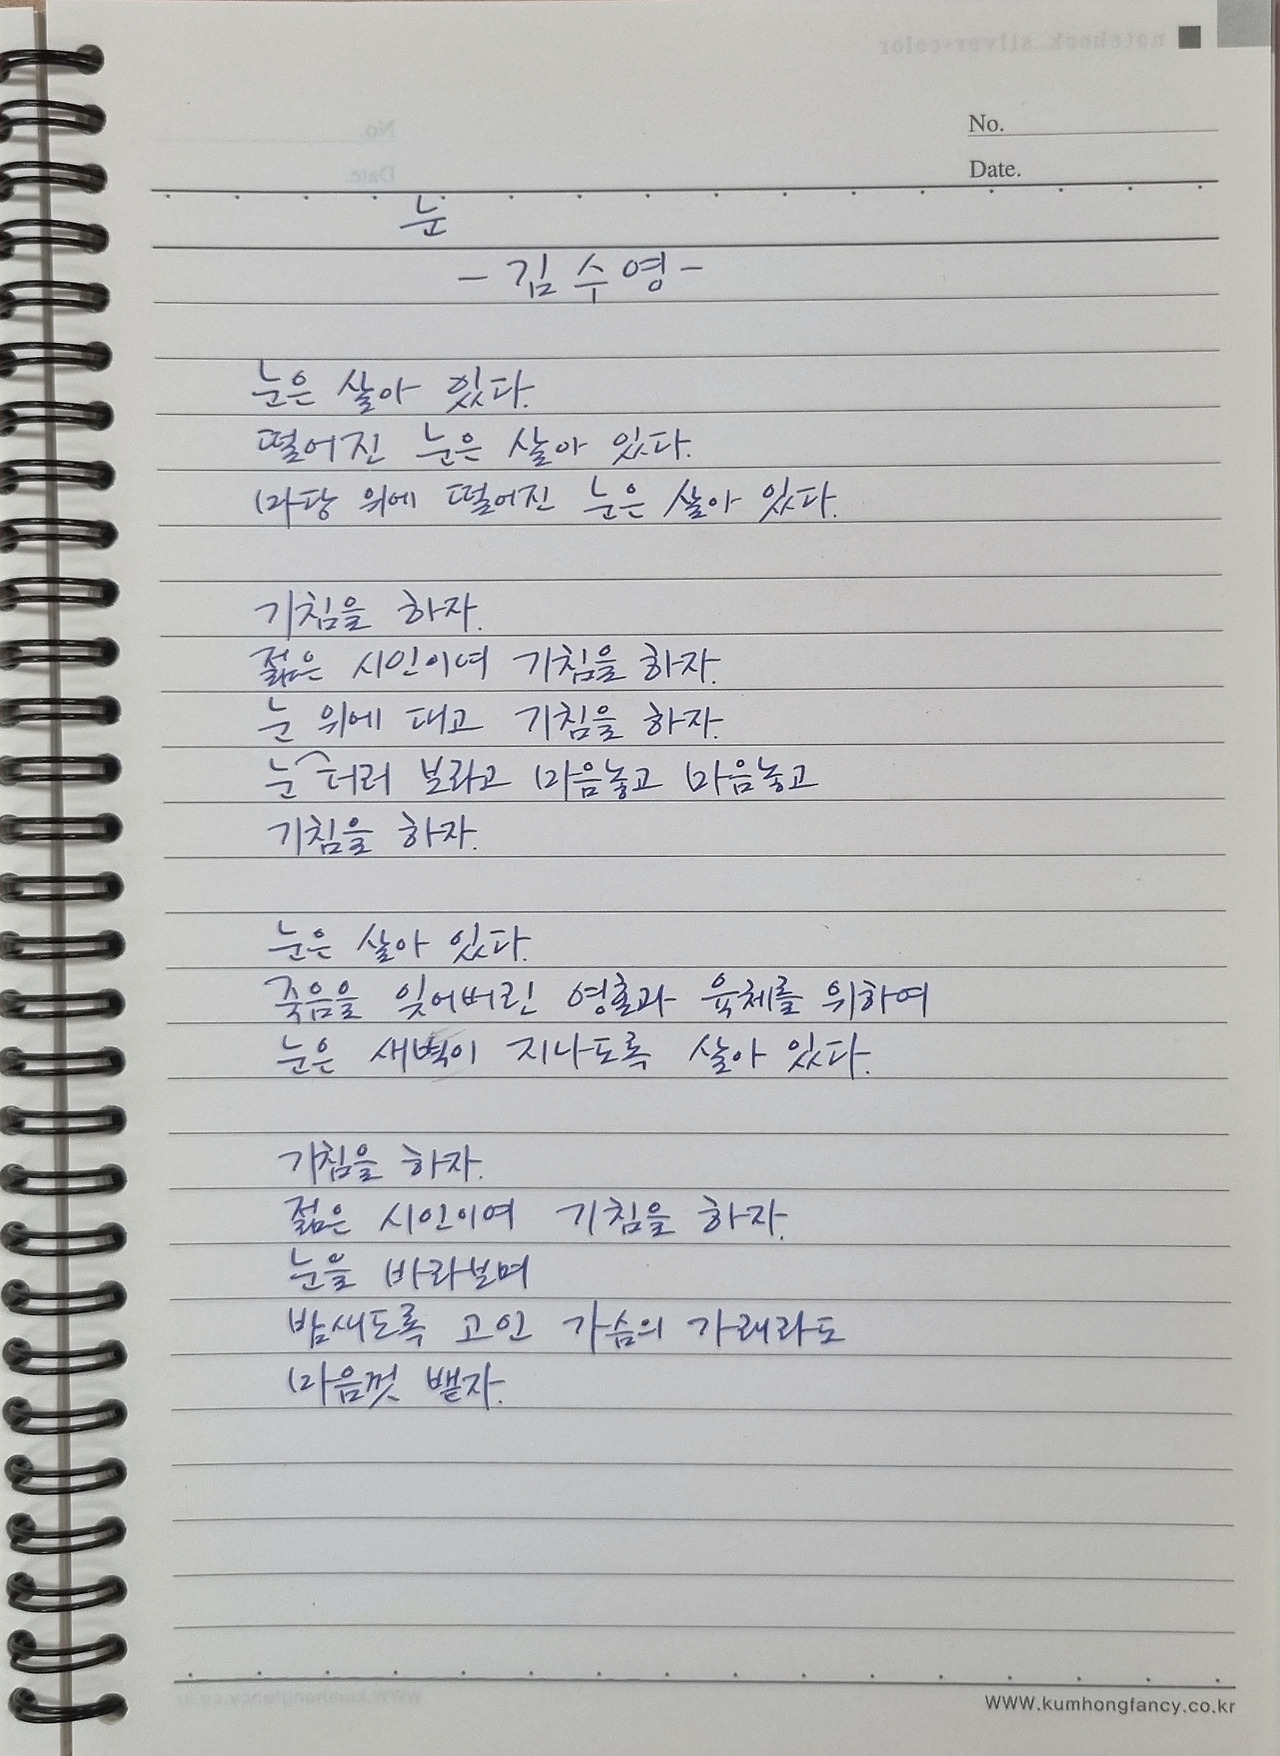 notebook. silver+color
No.
Date.
눈
- 김수영 -
눈은 살아 있다.
떨어진 눈은 살아 있다.
마당 위에 떨어진 눈은 살아 있다.
기침을 하자.
젊은 시인이여 기침을 하자.
눈 위에 대고 기침을 하자.
눈더러 보라고 마음놓고 마음놓고
기침을 하자.
눈은 살아 있다.
죽음을 잊어버린 영혼과 육체를 위하여
눈은 새벽이 지나도록 살아 있다.
기침을 하자.
젊은 시인이여 기침을 하자.
눈을 바라보며
밤새도록 고인 가슴의 가래라도
마음껏 뱉자.
WWW.kumhongfancy.co.kr